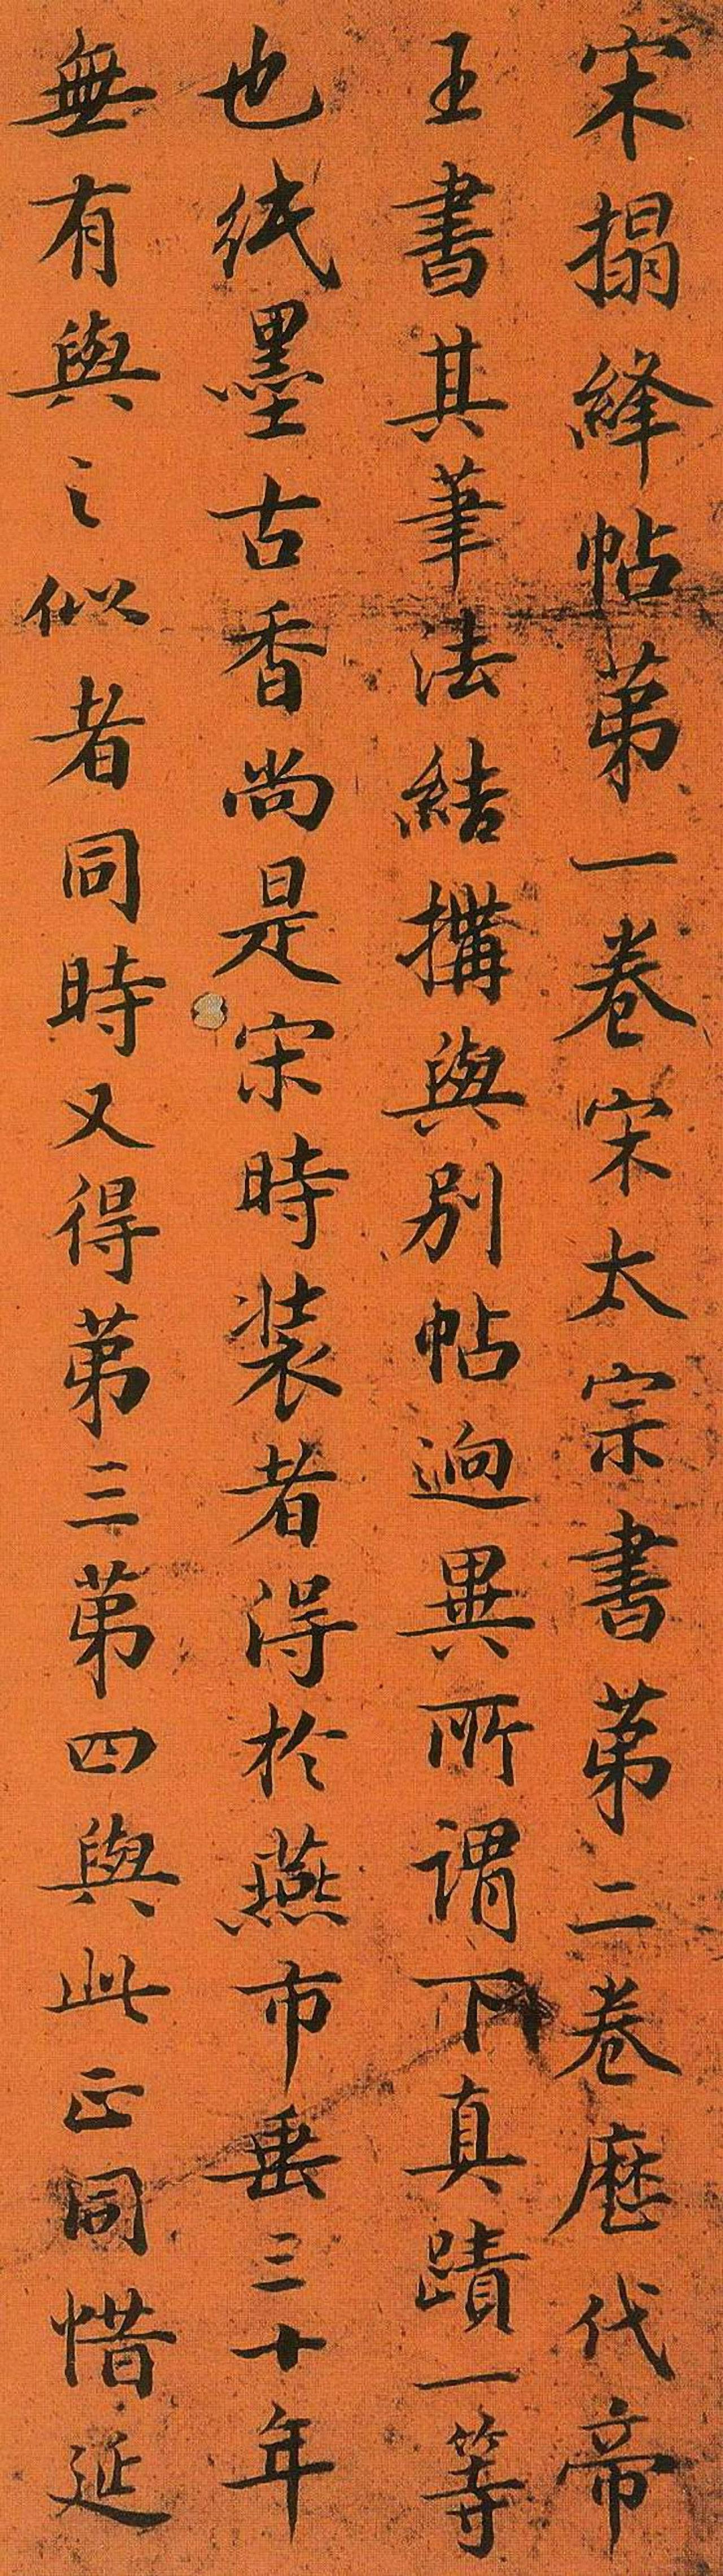 宋搨絳帖第一卷宋太宗書第二卷歷代帝
王書其筆法結搆與別帖迥異所謂下真蹟一等
也紙墨古香尚是宋時裝者得於燕市垂三十年
無有與之似者同時又得第三第四與此正同惜延